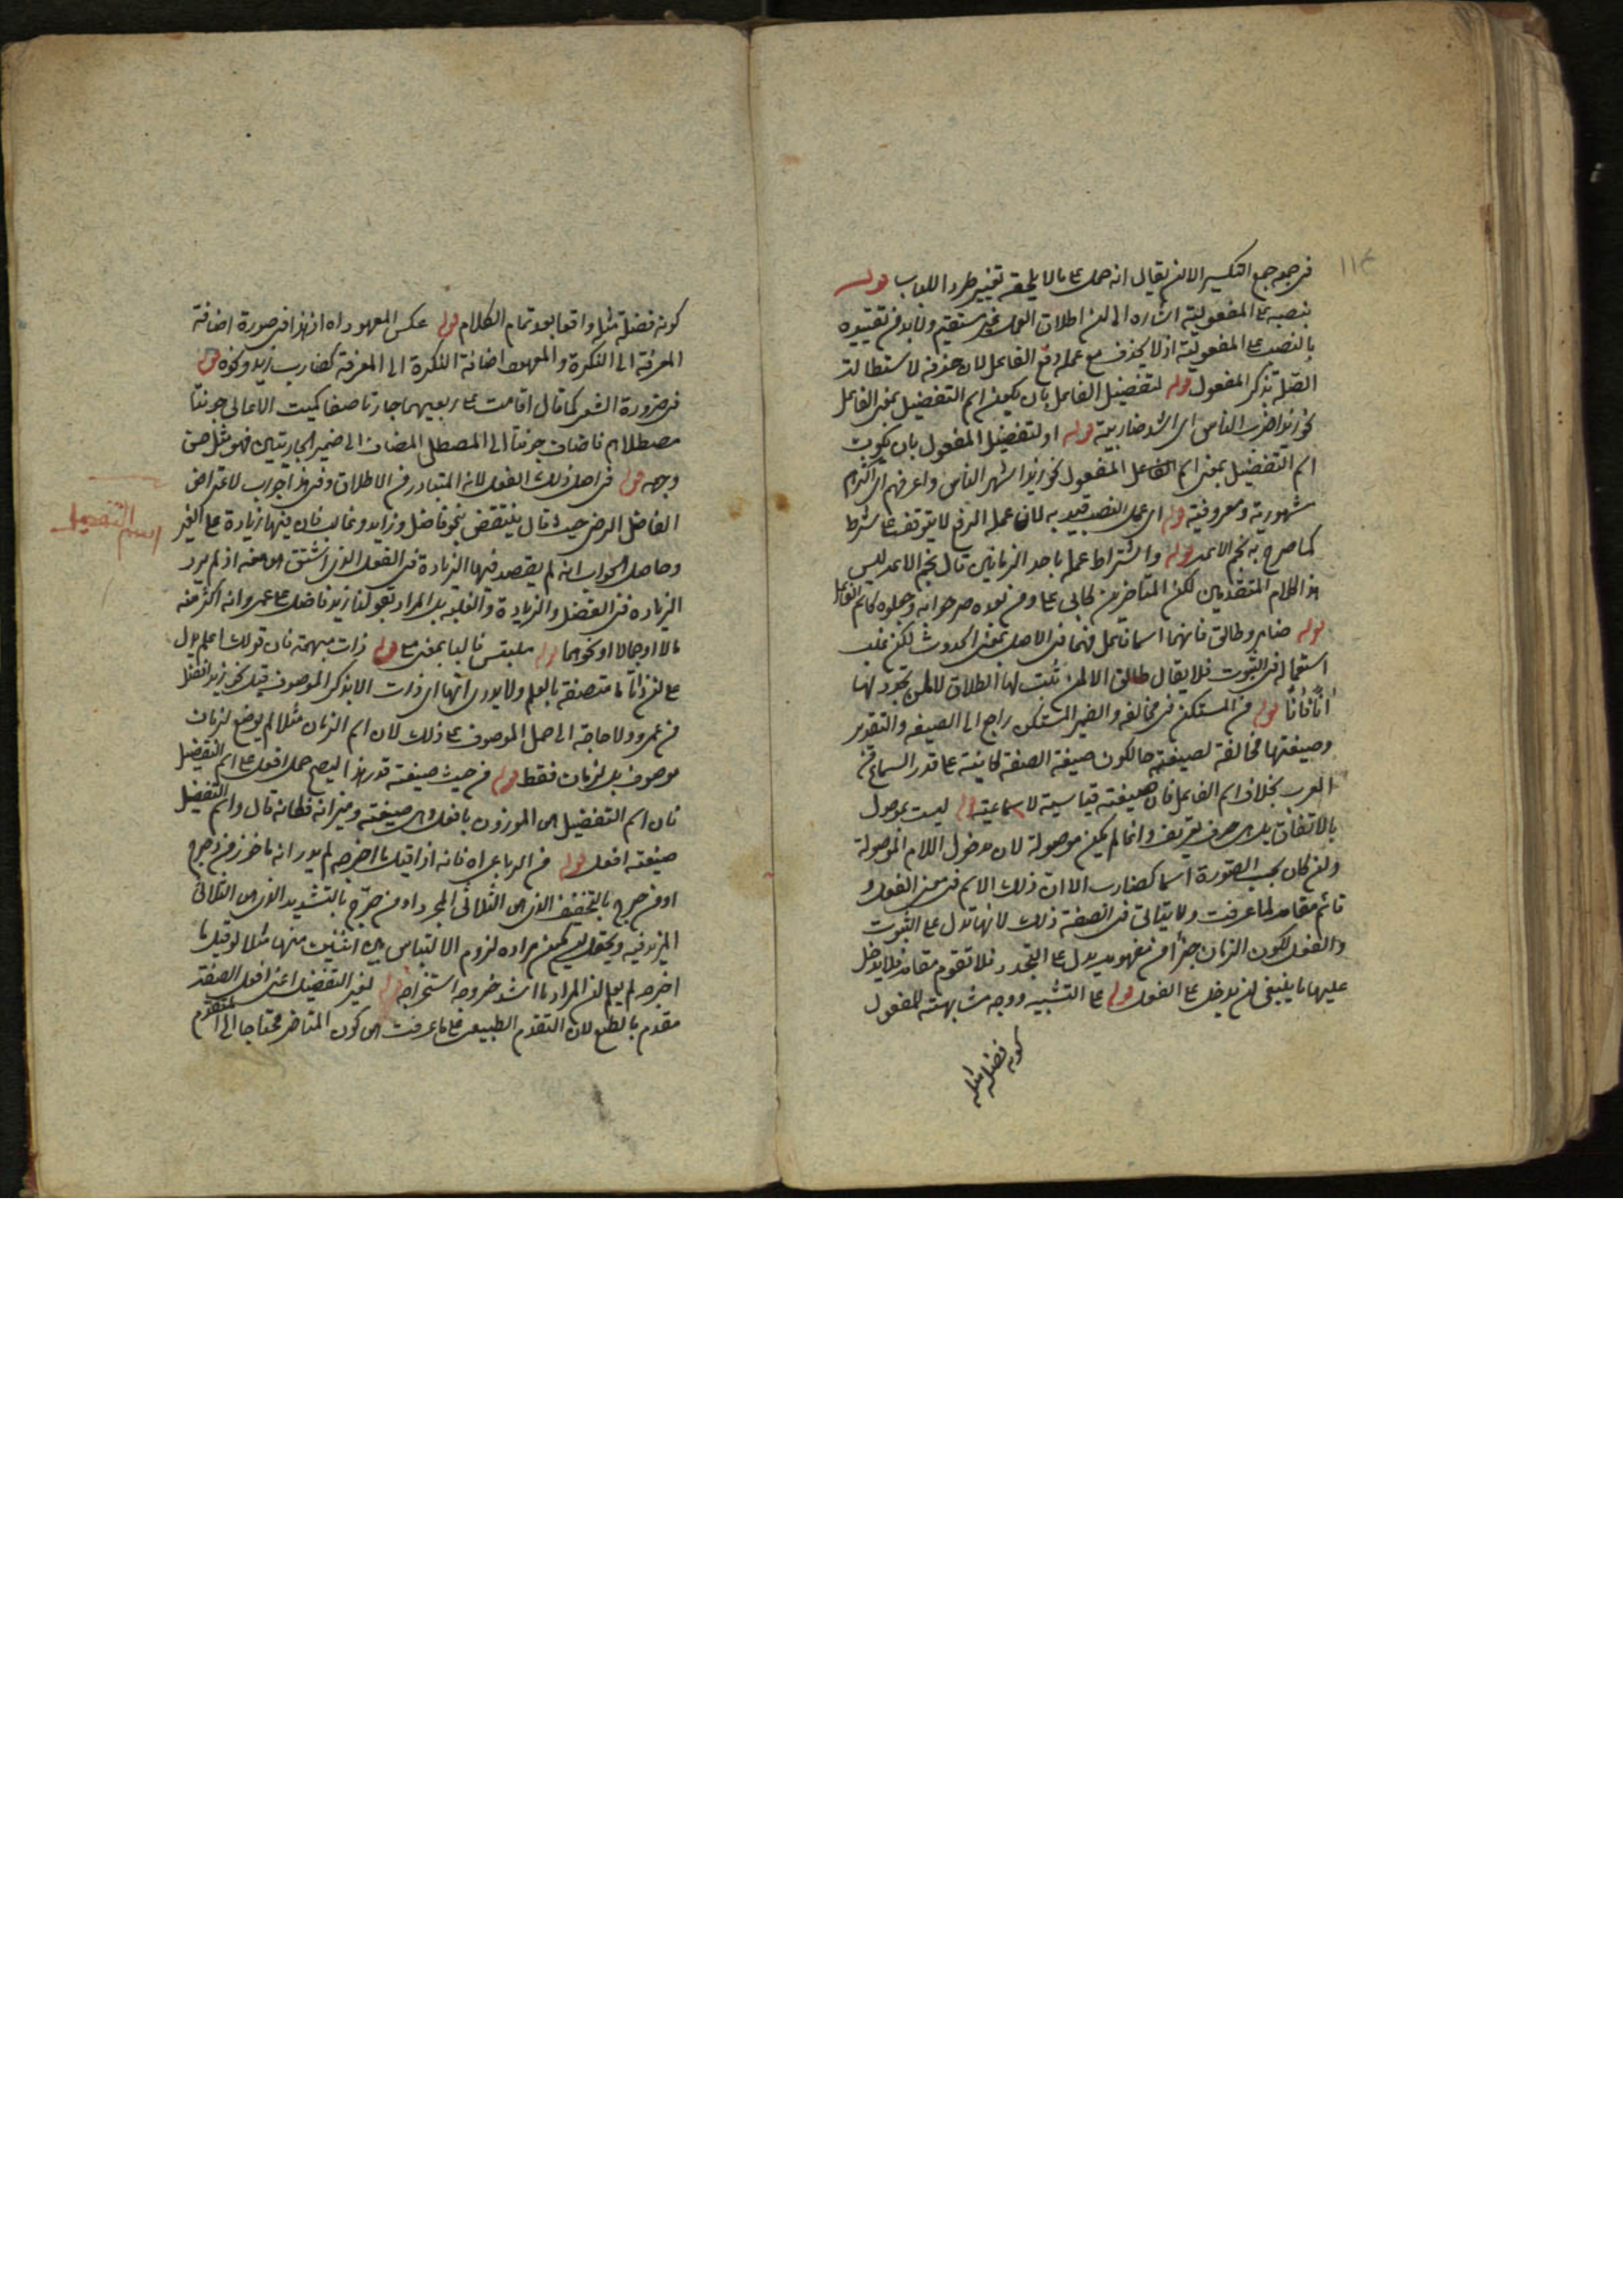 ١١٤
في جمع جمع التكسير الا ان يقال انه حمل على ما لا يلحقه تغيير طردا للباب قوله
بنصبه على المفعولية اشاره الى ان اطلاق العمل غير مستقيم ولا بد من تقييده
بالنصب على المفعولية اذ لا يحذف مع عمله رفع الفاعل لان حذفه لاستطالة
الصلة بذكر المفعول قوله لتفضيل الفاعل بان يكون اسم التفضيل بمعنى الفاعل
نحو زيد اضرب الناس اى اشد ضاربية قوله او لتفضيل المفعول بان يكون
اسم التفضيل بمعنى اسم المفعول نحو زيد اشهر الناس واعرفهم اى اكثرهم
مشهورية ومعروفية قوله اى عمل النصب قيد به لان عمل الرفع لا يتوقف على شرط
كما صرح به نجم الائمة قوله واشتراط عمله باحد الزمانين قال نجم الائمة ليس
هذا كلام المتقدمين لكن المتاخرين كابى على ومن بعده صرحوا به وجعلوه كاسم الفاعل
قوله ضامر وطالق فانهما اسما فاعل فهما فى الاصل بمعنى الحدوث لكن غلب
استعماله فى الثبوت فلا يقال طالق الا لمن ثبت لها الطلاق لا لمن تجدد لها
آنا فآنا قوله من المستكن فى مخالفه والضمير المستكن راجع الى الصيغه والتقدير
وصيغتها مخالفة لصيغته حال كون صيغة الصفة كائنة على قدر السماع من
العرب بخلاف اسم الفاعل فان صيغته قياسية لا سماعية قوله ليست بموصول
بالاتفاق بل هى حرف تعريف وانما لم يكن موصولة لان مدخول اللام الموصولة
وان كان بحسب الصورة اسما كضارب الا ان ذلك الاسم فى معنى الفعل و
قائم مقامه لما عرفت ولا يتاتى فى الصفة ذلك لانها تدل على الثبوت
والفعل لكون الزمان جزأ من مفهومه يدل على التجدد فلا تقوم مقامه فلا يدخل
عليها ما ينبغى ان يدخل على الفعل قوله على التشبيه ووجه مشابهته للمفعول
كونه فضلة مثله
كونه فضلة مثله واقعا بعد تمام الكلام قوله عكس المعهود اه اذ هذا فى صورة اضافة
المعرفة الى النكرة والمعهود اضافة النكرة الى المعرفة كضارب زيد ونحوه قوله
فى ضرورة الشعر كما قال اقامت على ربعيهما جارتا صفا كميت الاعالى جونتا
مصطلاهما فاضاف جونتا الى المصطلى المضاف الى ضمير الجارتين فهو مثل حسن
وجهه قوله فى اصل ذلك الفعل لانه المتبادر من الاطلاق وفى هذا جواب لاعتراض
الفاضل الرضى حيث قال ينتقض بنحو فاضل وزايد وغالب فان فيها زيادة على الغير
وحاصل الجواب انه لم يقصد فيها الزيادة فى الفعل الذى اشتق هى منه اذ لم يرد
الزياده فى الفضل والزيادة والغلبه بل المراد بقولنا زيد فاضل على عمرو انه اكثر منه
مالا او جمالا او نحوهما قوله ملتبس فالباء بمعنى مع قوله ذات مبهمة فان قولك اعلم يدل
على ان ذاتا ما متصفة بالعلم ولا يدرى انها اى ذات الا بذكر الموصوف قبله نحو زيد افضل
من عمرو ولا حاجة الى حمل الموصوف على ذلك لان اسم الزمان مثلا لم يوضع لزمان
موصوف بل لزمان فقط قوله من حيث صيغته قدر هذا ليصح حمل افعل على اسم التفضيل
فان اسم التفضيل هى الموزون بافعل وهى صيغته وميزانه فكانه قال واسم التفضيل
صيغته افعل قوله من الرباعى اه فانه اذا قيل ما اخرجه لم يدر انه ماخوذ من دحرج
او من خرج بالتخفيف الذى هى الثلاثى المجرد او من خرّج بالتشديد الذى هى الثلاثى
المزيد فيه ويحتمل ان يكون مراده لزوم الالتباس بين اثنين منها مثلا لو قيل ما
اخرجه لم يعلم ان المراد ما اشد خروجه استخراجه قوله لغير التفضيل اعنى افعل الصفة
مقدم بالطبع لان التقدم الطبيعى على ما عرفت هى كون المتاخر محتاجا الى المتقدم
اسم التفضيل